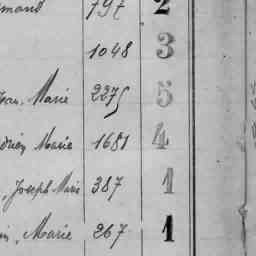 797 2
1048 3
Marie 2275 5
Marie 1681 4
, Joseph Marie 387 1
, Marie 267 1